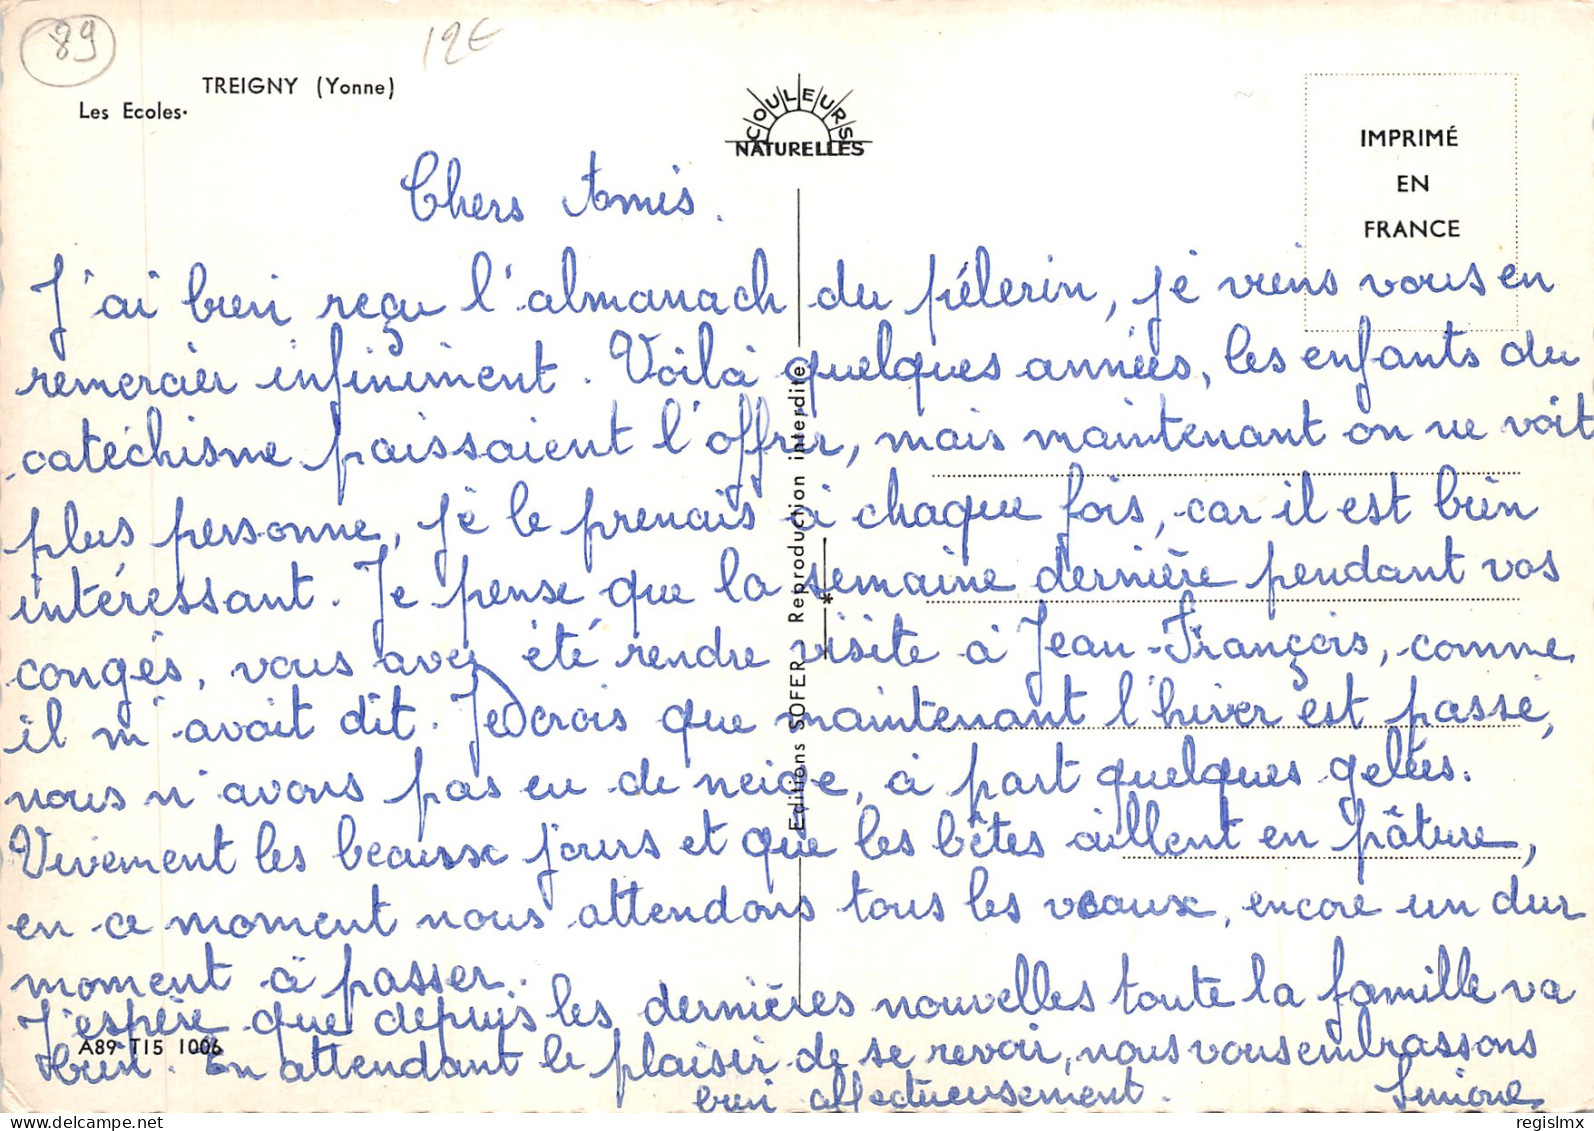 89
12€
TREIGNY (Yonne)
Les Ecoles.
COULEURS
NATURELLES
IMPRIMÉ
EN
FRANCE
Chers Amis.
J'ai bien reçu l'almanach du pélerin, je viens vous en
remercier infiniment. Voilà quelques années, les enfants du
catéchisme paissaient l'offrir, mais maintenant on ne voit
plus personne, je le prenais à chaque fois, car il est bien
intéressant. Je pense que la semaine dernière pendant vos
congés, vous avez été rendre visite à Jean-François, comme
il m'avait dit. Je crois que maintenant l'hiver est passé,
nous n'avons pas eu de neige, à part quelques gelées.
Vivement les beaux jours et que les bêtes aillent en pâture,
en ce moment nous attendons tous les veaux, encore un dur
moment à passer.
J'espère que depuis les dernières nouvelles toute la famille va
bien. En attendant le plaisir de se revoir, nous vous embrassons
bien affectueusement.
Simone
Editions SOFER - Reproduction interdite
*
A89 T15 1006
www.delcampe.net
regislmx